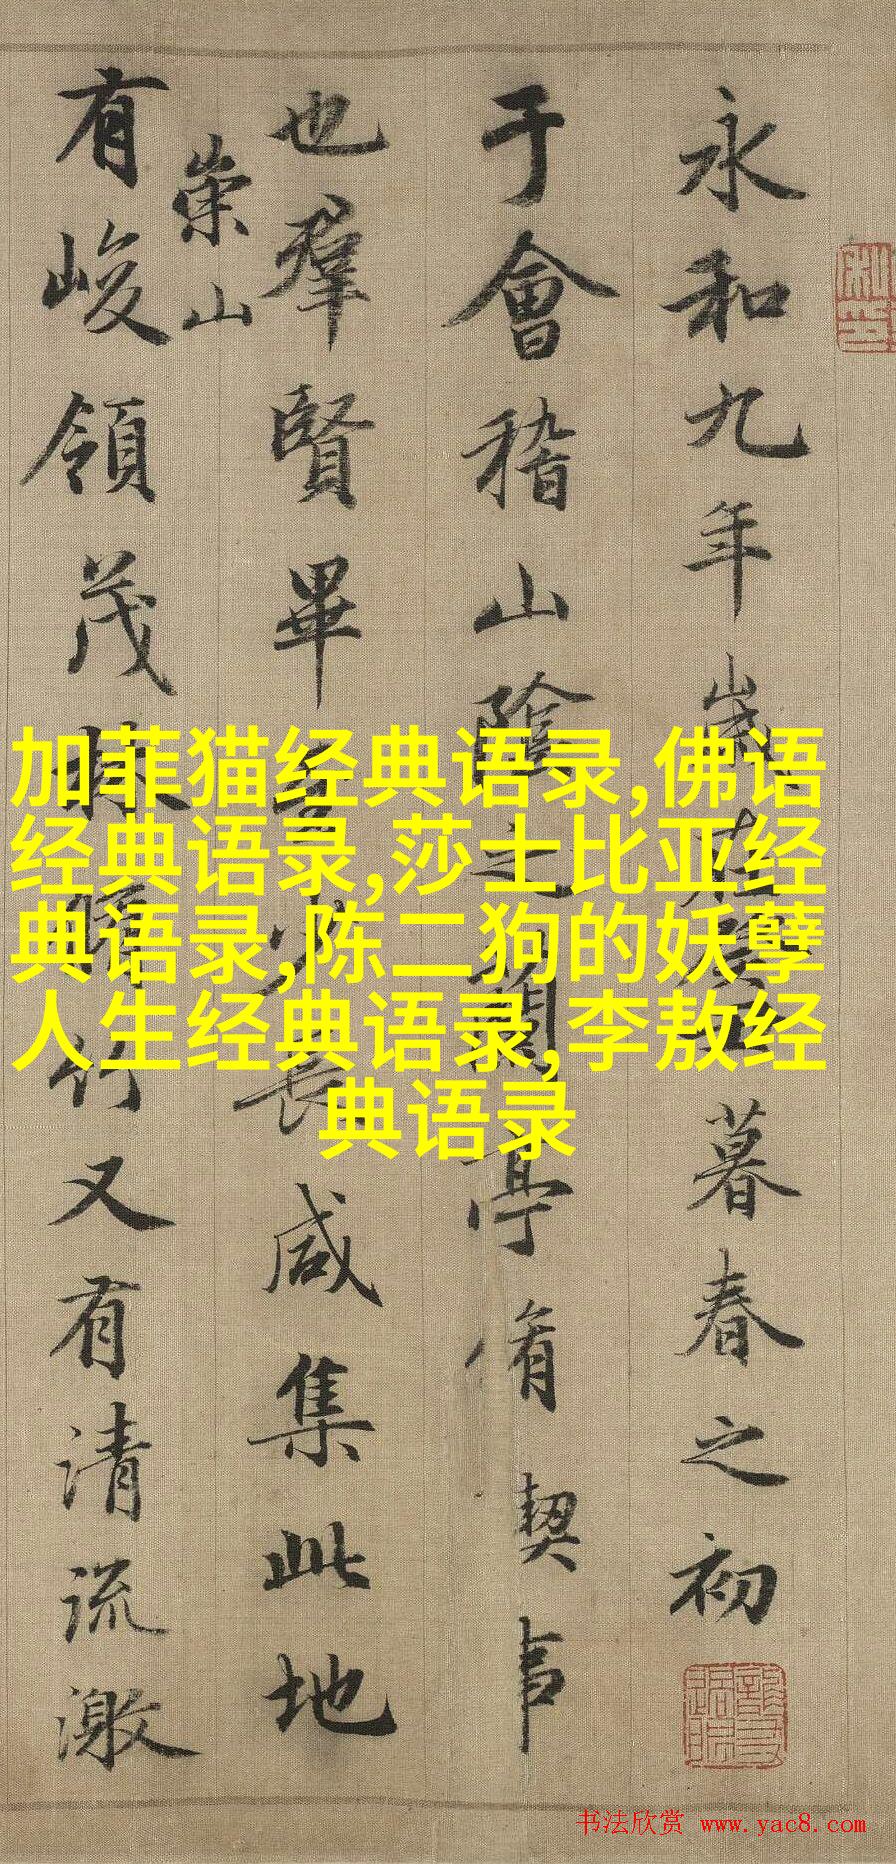 永和九年歲在癸丑暮春之初
于會稽山陰之蘭亭脩契事
也羣賢畢至少長咸集此地
有崇山峻領茂林脩竹又有清流激
加菲猫经典语录,佛语
经典语录,莎士比亚经
典语录,陈二狗的妖孽
人生经典语录,李敖经
典语录
书法欣赏 www.yac8.com